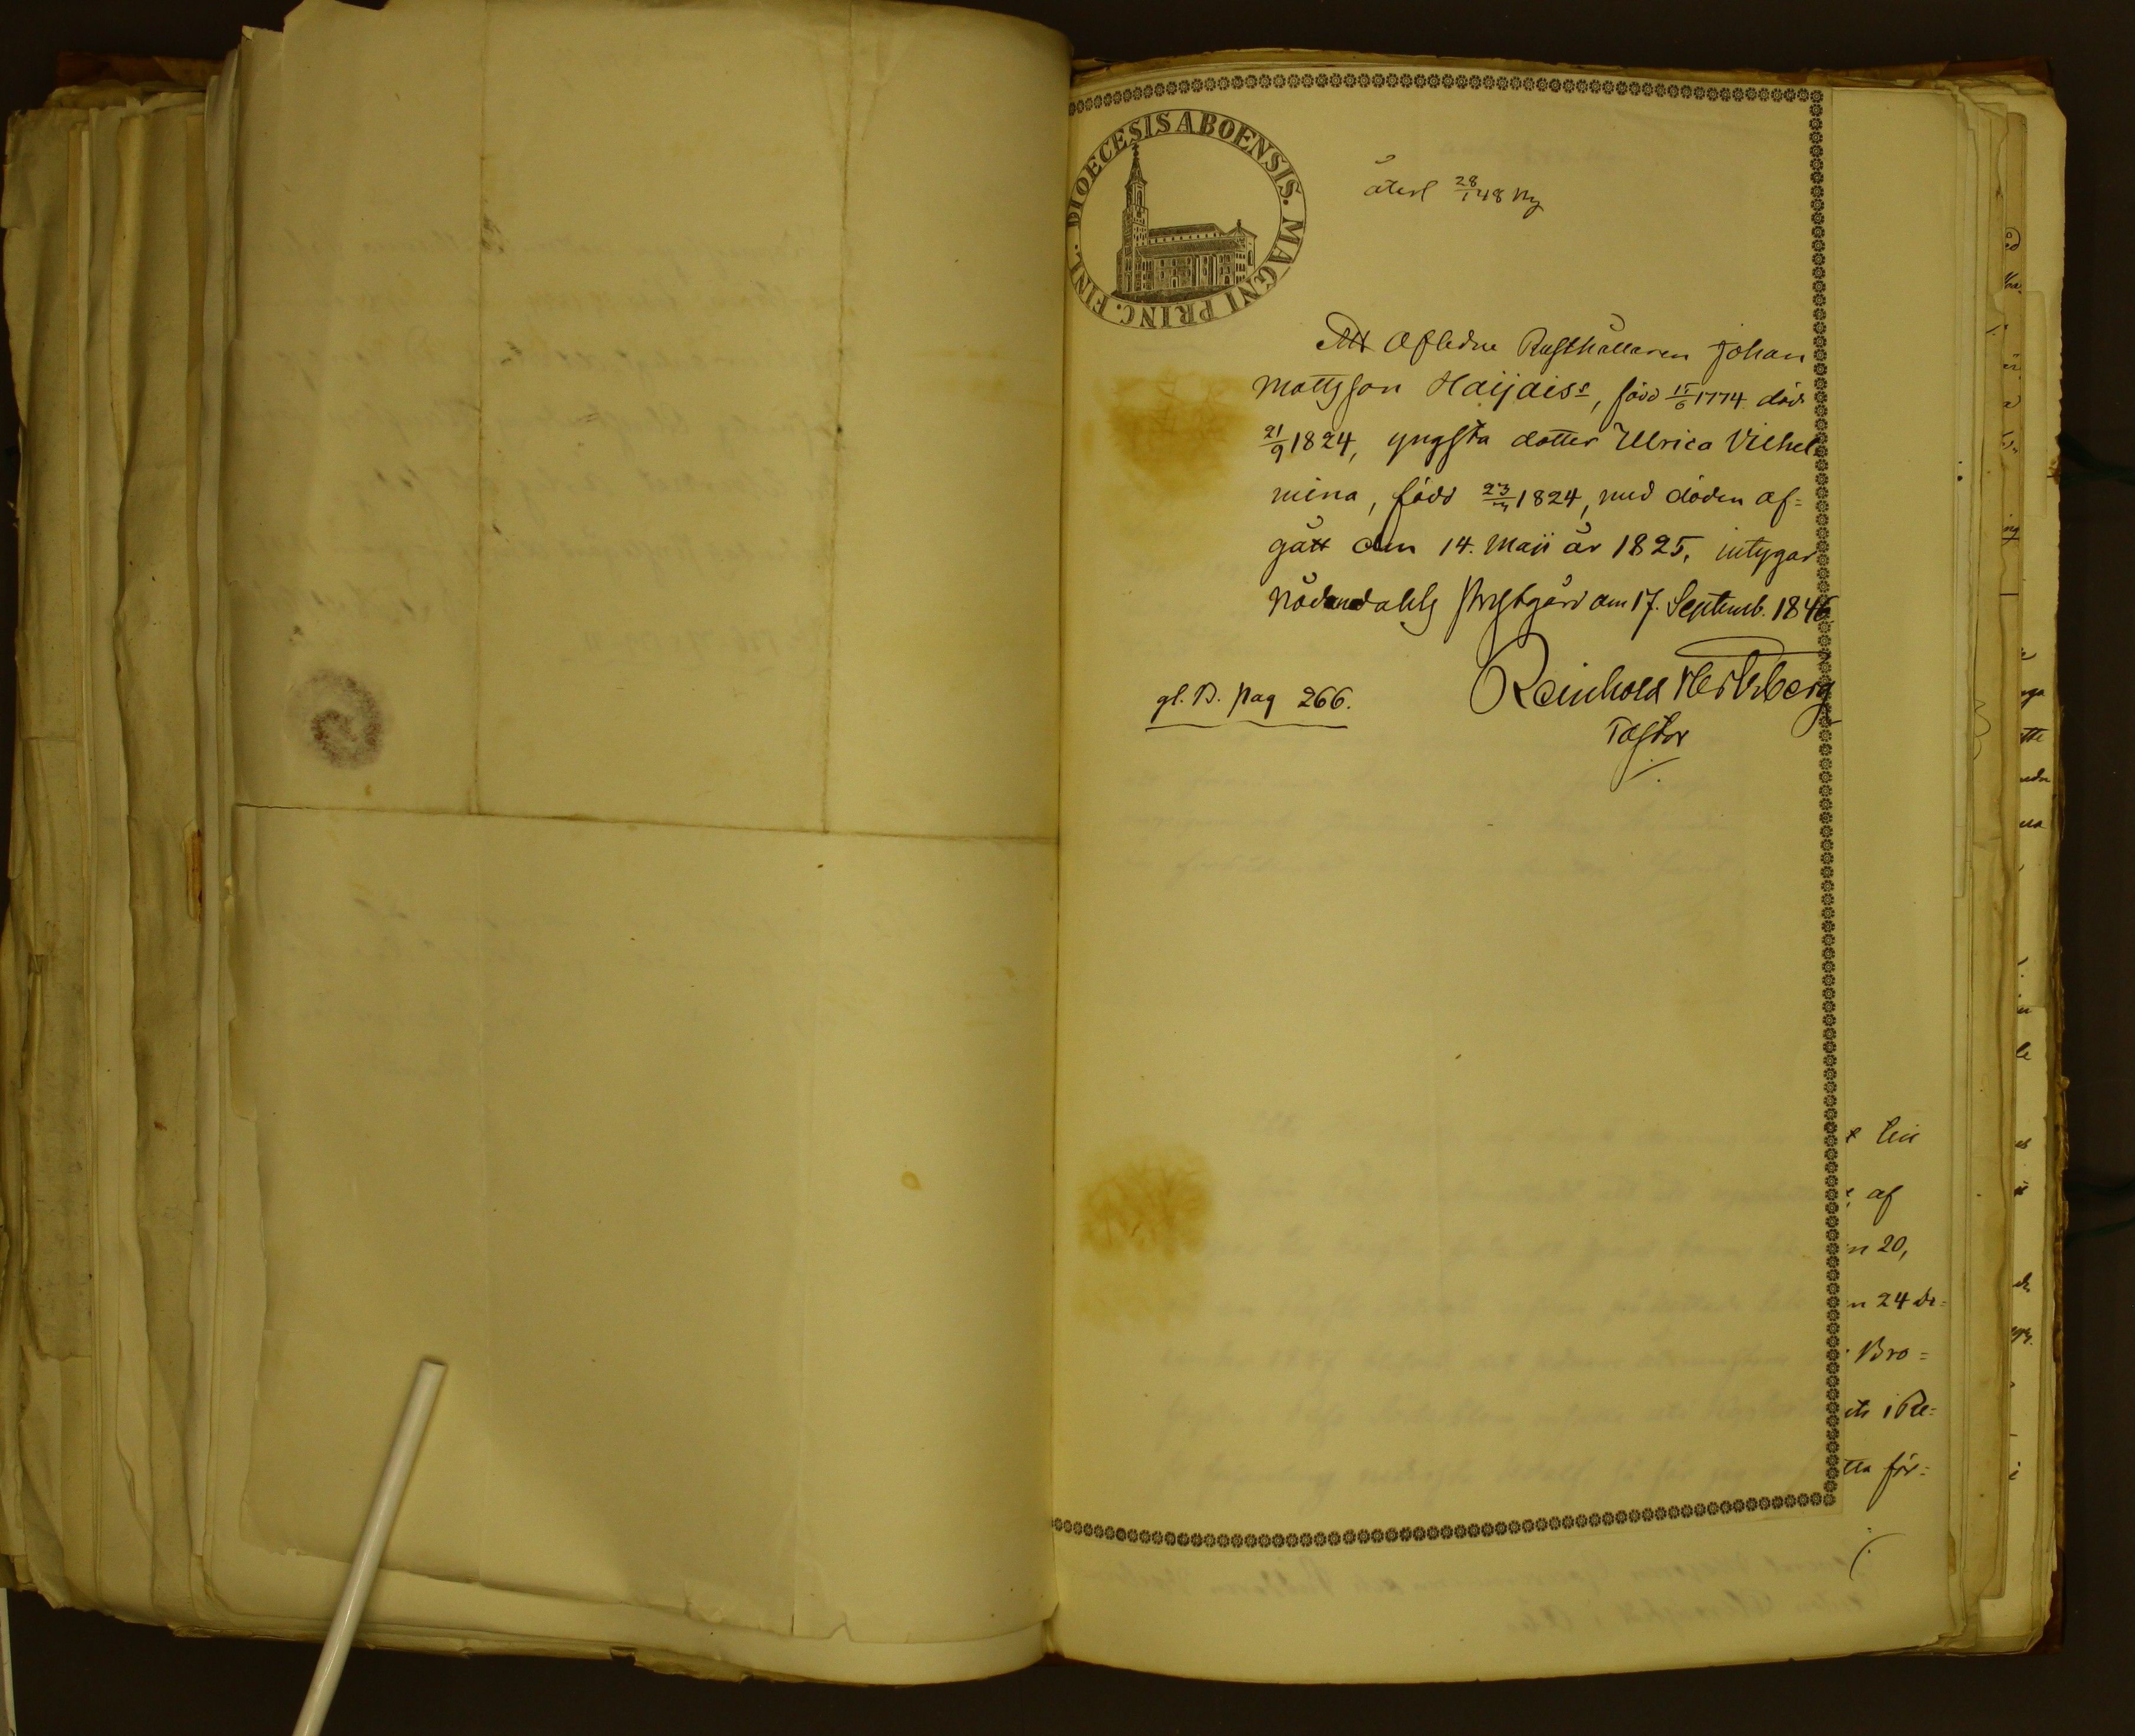 DIOECESIS ABOENSIS. MAGNI PRINC. FINL.
återl 28/1 48 Ny
Att Aflidne Rusthållaren Johan
Mattsson Haijais, född 15/6 1774 död
21/9 1824, yngsta dotter Ulrica Vilhel
mina, född 23/3 1824, med döden af=
gått den 14. Maji år 1825, intygar
Nådendahls Prestgård den 17. Septemb. 1846
Reinhold Hertzberg
Pastor
gl. B. pag 266.
af
n 20,
n 24 de=
Bro=
i Re=
tta för=